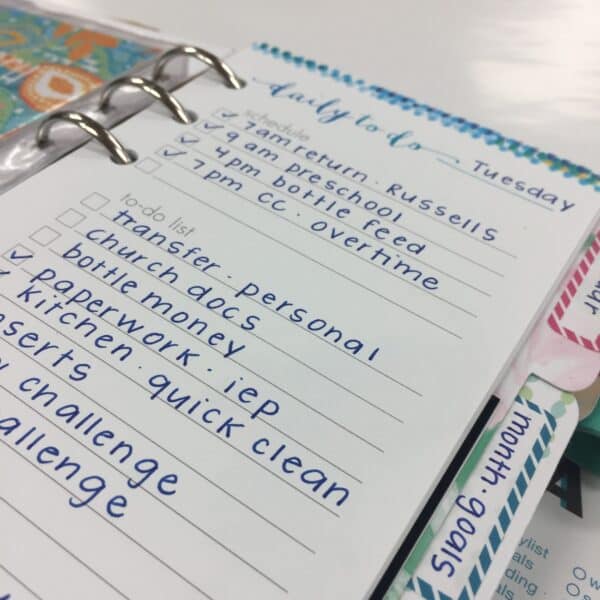 daily to do Tuesday
schedule
7am return · Russells
9 am preschool
4pm bottle feed
7pm CC · overtime
to-do list
transfer · personal
church docs
bottle money
paperwork · iep
kitchen · quick clean
challenge
month · goals